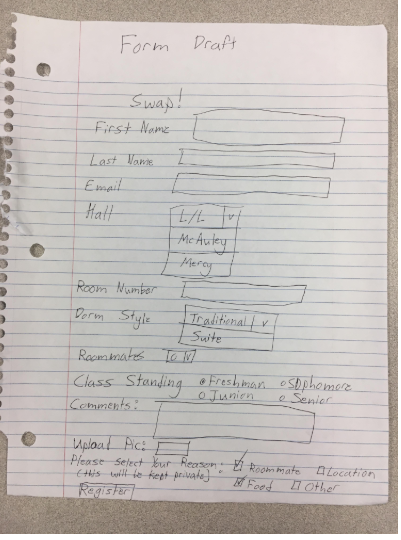 Form Draft
Swap!
First Name
Last Name
Email
Hall L/L v
McAuley
Mercy
Room Number
Dorm Style Traditional v
Suite
Roommates 0 v
Class Standing Freshman Sophomore
Junior Senior
Comments:
Upload Pic:
Please Select Your Reason: Roommate Location
(this will be kept private) Food Other
Register